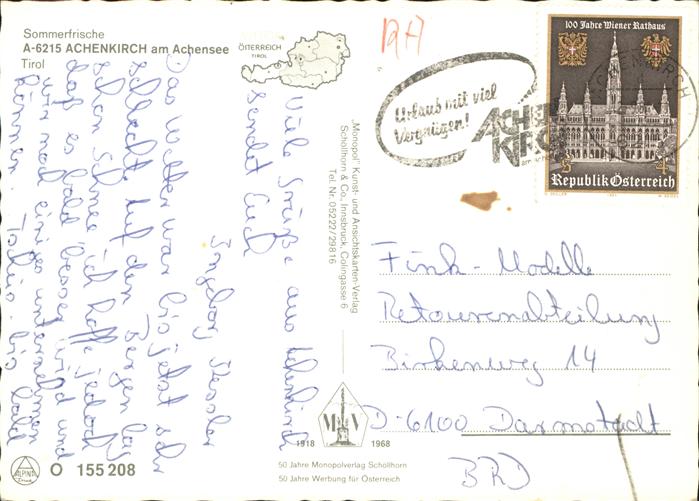 Sommerfrische
A-6215 ACHENKIRCH am Achensee
Tirol
ÖSTERREICH
TIROL
Viele Grüße aus Achenkirch
sendet Euch
Ingeborg
Das Wetter war bis jetzt sehr
schlecht. Auf den Bergen lag
schon Schnee ich hoffe jedoch
daß es bald besser wird und
wir noch einiges unternehmen
können. bis bald
„Monopol" Kunst- und Ansichtskarten-Verlag
Schöllhorn & Co., Innsbruck, Colingasse 6
Tel. Nr. 05222/29816
M V
1918 1968
50 Jahre Monopolverlag Schöllhorn
50 Jahre Werbung für Österreich
ALPINA
Druck
O 155 208
Urlaub mit viel
Vergnügen!
ACHEN
KIRCH
100 Jahre Wiener Rathaus
S 4
Republik Österreich
Fink-Modelle
Retourenabteilung
Birkenweg 14
D-6100 Darmstadt
BRD